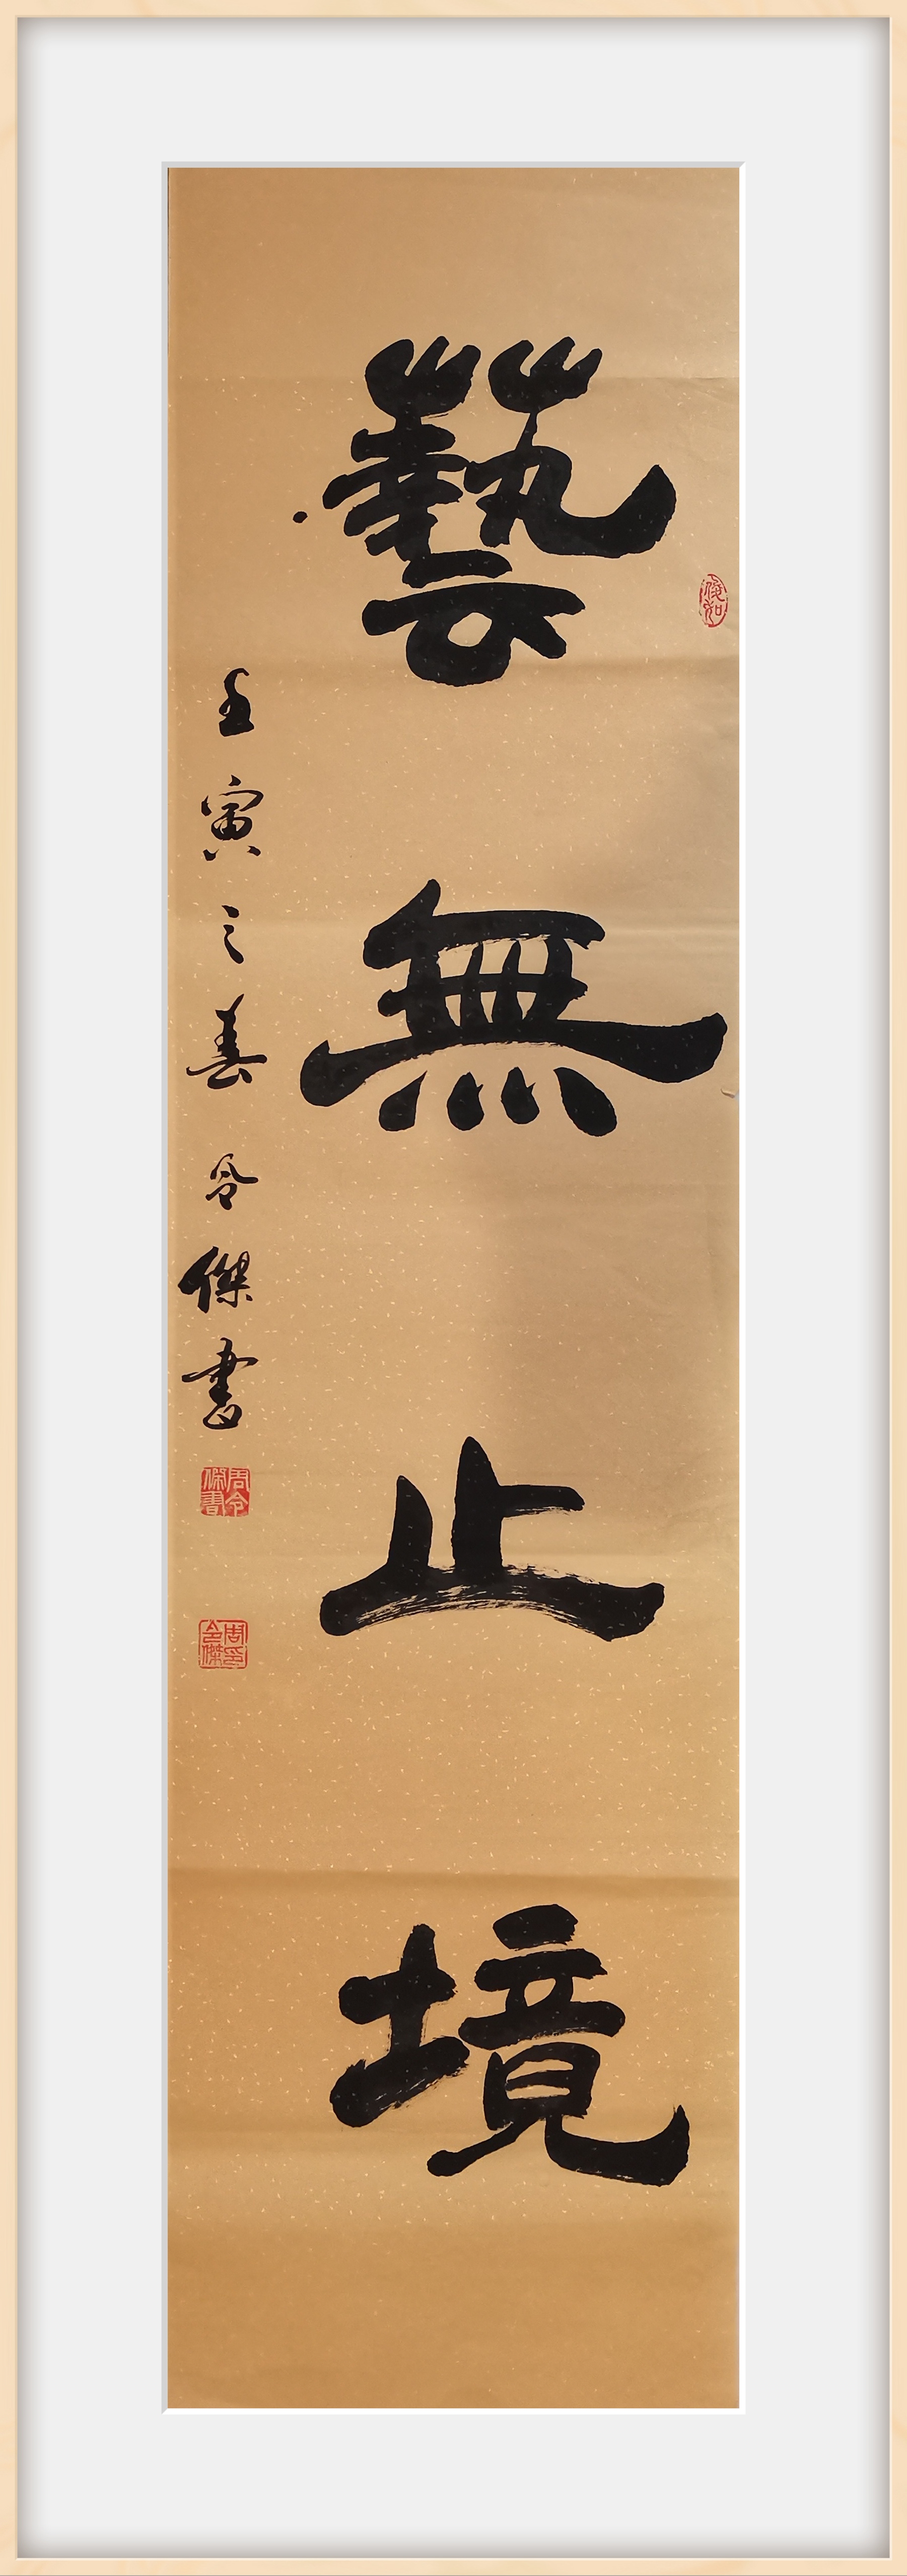 藝無止境
壬寅之春令傑書
周令傑書
周令傑印